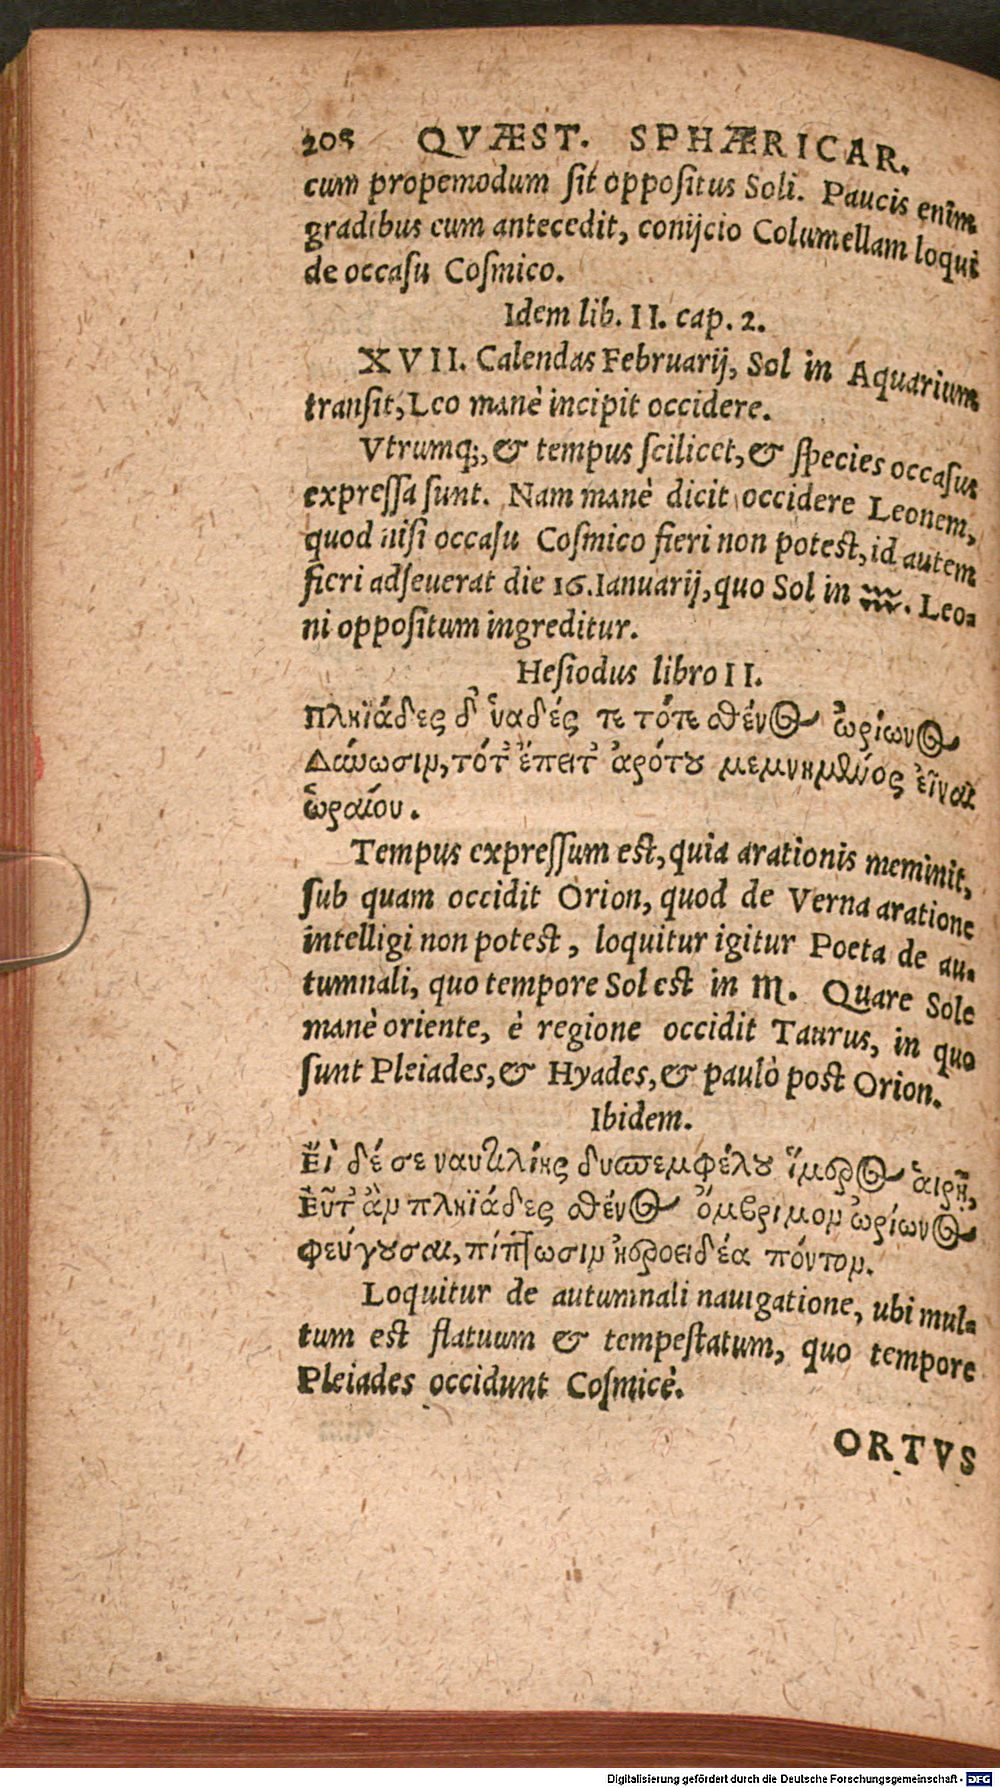 205 QVÆST. SPHÆRICAR.
cum propemodum ſit oppoſitus Soli. Paucis enim
gradibus cum antecedit, conijcio Columellam loqui
de occaſu Coſmico.
Idem lib. II. cap. 2.
XVII. Calendas Februarij, Sol in Aquarium
tranſit, Leo manè incipit occidere.
Vtrumq;, & tempus ſcilicet, & ſpecies occaſus
expreſſa ſunt. Nam manè dicit occidere Leonem,
quod niſi occaſu Coſmico fieri non poteſt, id autem
fieri adſeuerat die 16. Ianuarij, quo Sol in ♒. Leo-
ni oppoſitum ingreditur.
Heſiodus libro II.
Πληϊάδες δ' ὑαδές τε τότε σθένος ὠρίωνος
Δύνωσιν, τότ' ἔπειτ' ἀρότου μεμνημένος εἶναι
ὡραίου.
Tempus expreſſum eſt, quia arationis meminit,
ſub quam occidit Orion, quod de Verna aratione
intelligi non poteſt, loquitur igitur Poeta de au-
tumnali, quo tempore Sol eſt in ♏. Quare Sole
manè oriente, è regione occidit Taurus, in quo
ſunt Pleiades, & Hyades, & paulò poſt Orion.
Ibidem.
Εἰ δέ σε ναυτιλίης δυσπεμφέλου ἵμερος αἱρῇ,
Εὖτ' ἂν πληϊάδες σθένος ὄμβριμον ὠρίωνος
φεύγουσαι, πίπτωσιν ἠεροειδέα πόντον.
Loquitur de autumnali nauigatione, ubi mul-
tum eſt flatuum & tempeſtatum, quo tempore
Pleiades occidunt Coſmicè.
ORTVS
Digitalisierung gefördert durch die Deutsche Forschungsgemeinschaft - DFG